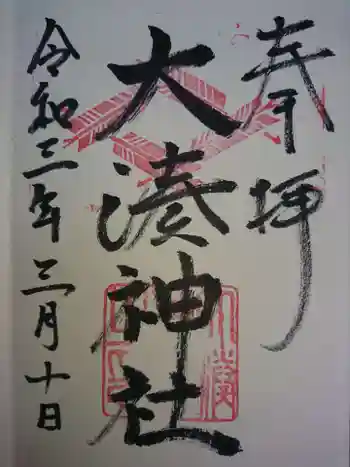 奉拝
大湊神社
令和三年三月十日